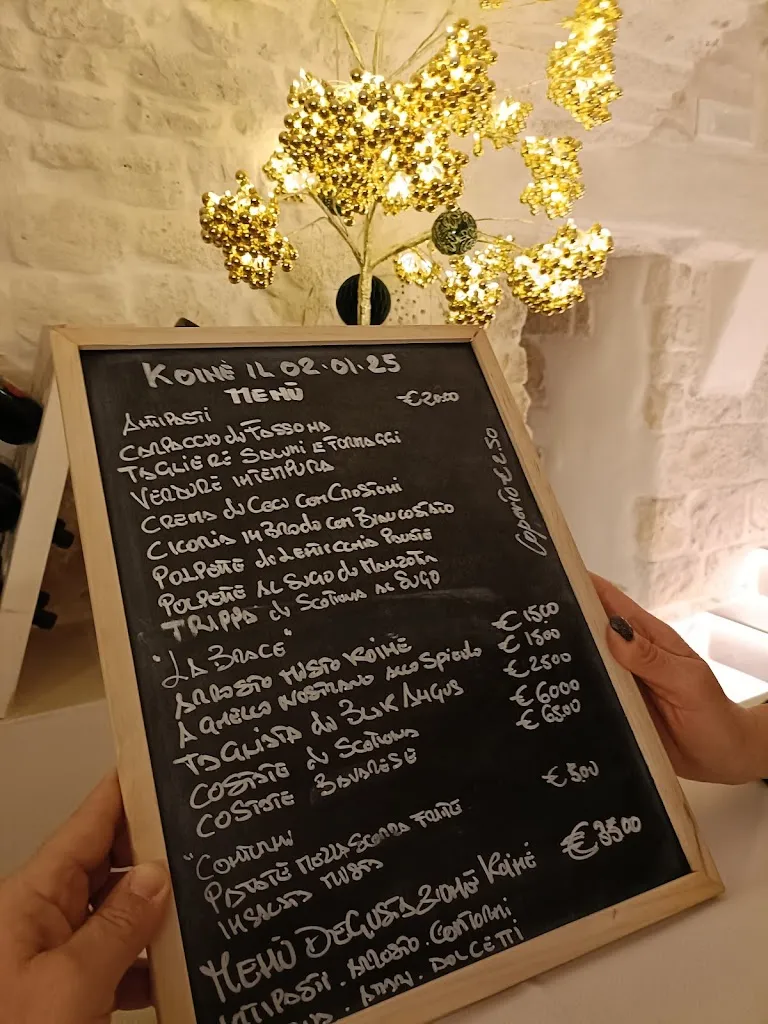 KOINÈ IL 02.01.25
MENÙ
ANTIPASTI €20.00
CARPACCIO di FASSONA
TAGLIERE SALUMI E FORMAGGI
VERDURE IN TEMPURA
CREMA di CECI CON CROSTONI
CICORIA IN BRODO CON BIANCOSTATO
POLPETTE di LENTICCHIA
POLPETTE AL SUGO di MANZOTTA
TRIPPA di SCOTTONA AL SUGO
Coperto € 2.50
"LA BRACE"
ARROSTO MISTO KOINÈ €15.00
AGNELLO NOSTRANO ALLO SPIEDO €18.00
TAGLIATA di BLAK ANGUS €25.00
COSTATE di SCOTTONA €60.00
COSTATE BAVARESE €65.00
"CONTORNI
PATATE MEZZA SCORZA FRITTE €5.00
INSALATA MISTA
MENÙ DEGUSTAZIONE KOINÈ €35.00
ANTIPASTI. ARROSTO. CONTORNI
AMARI. DOLCETTI